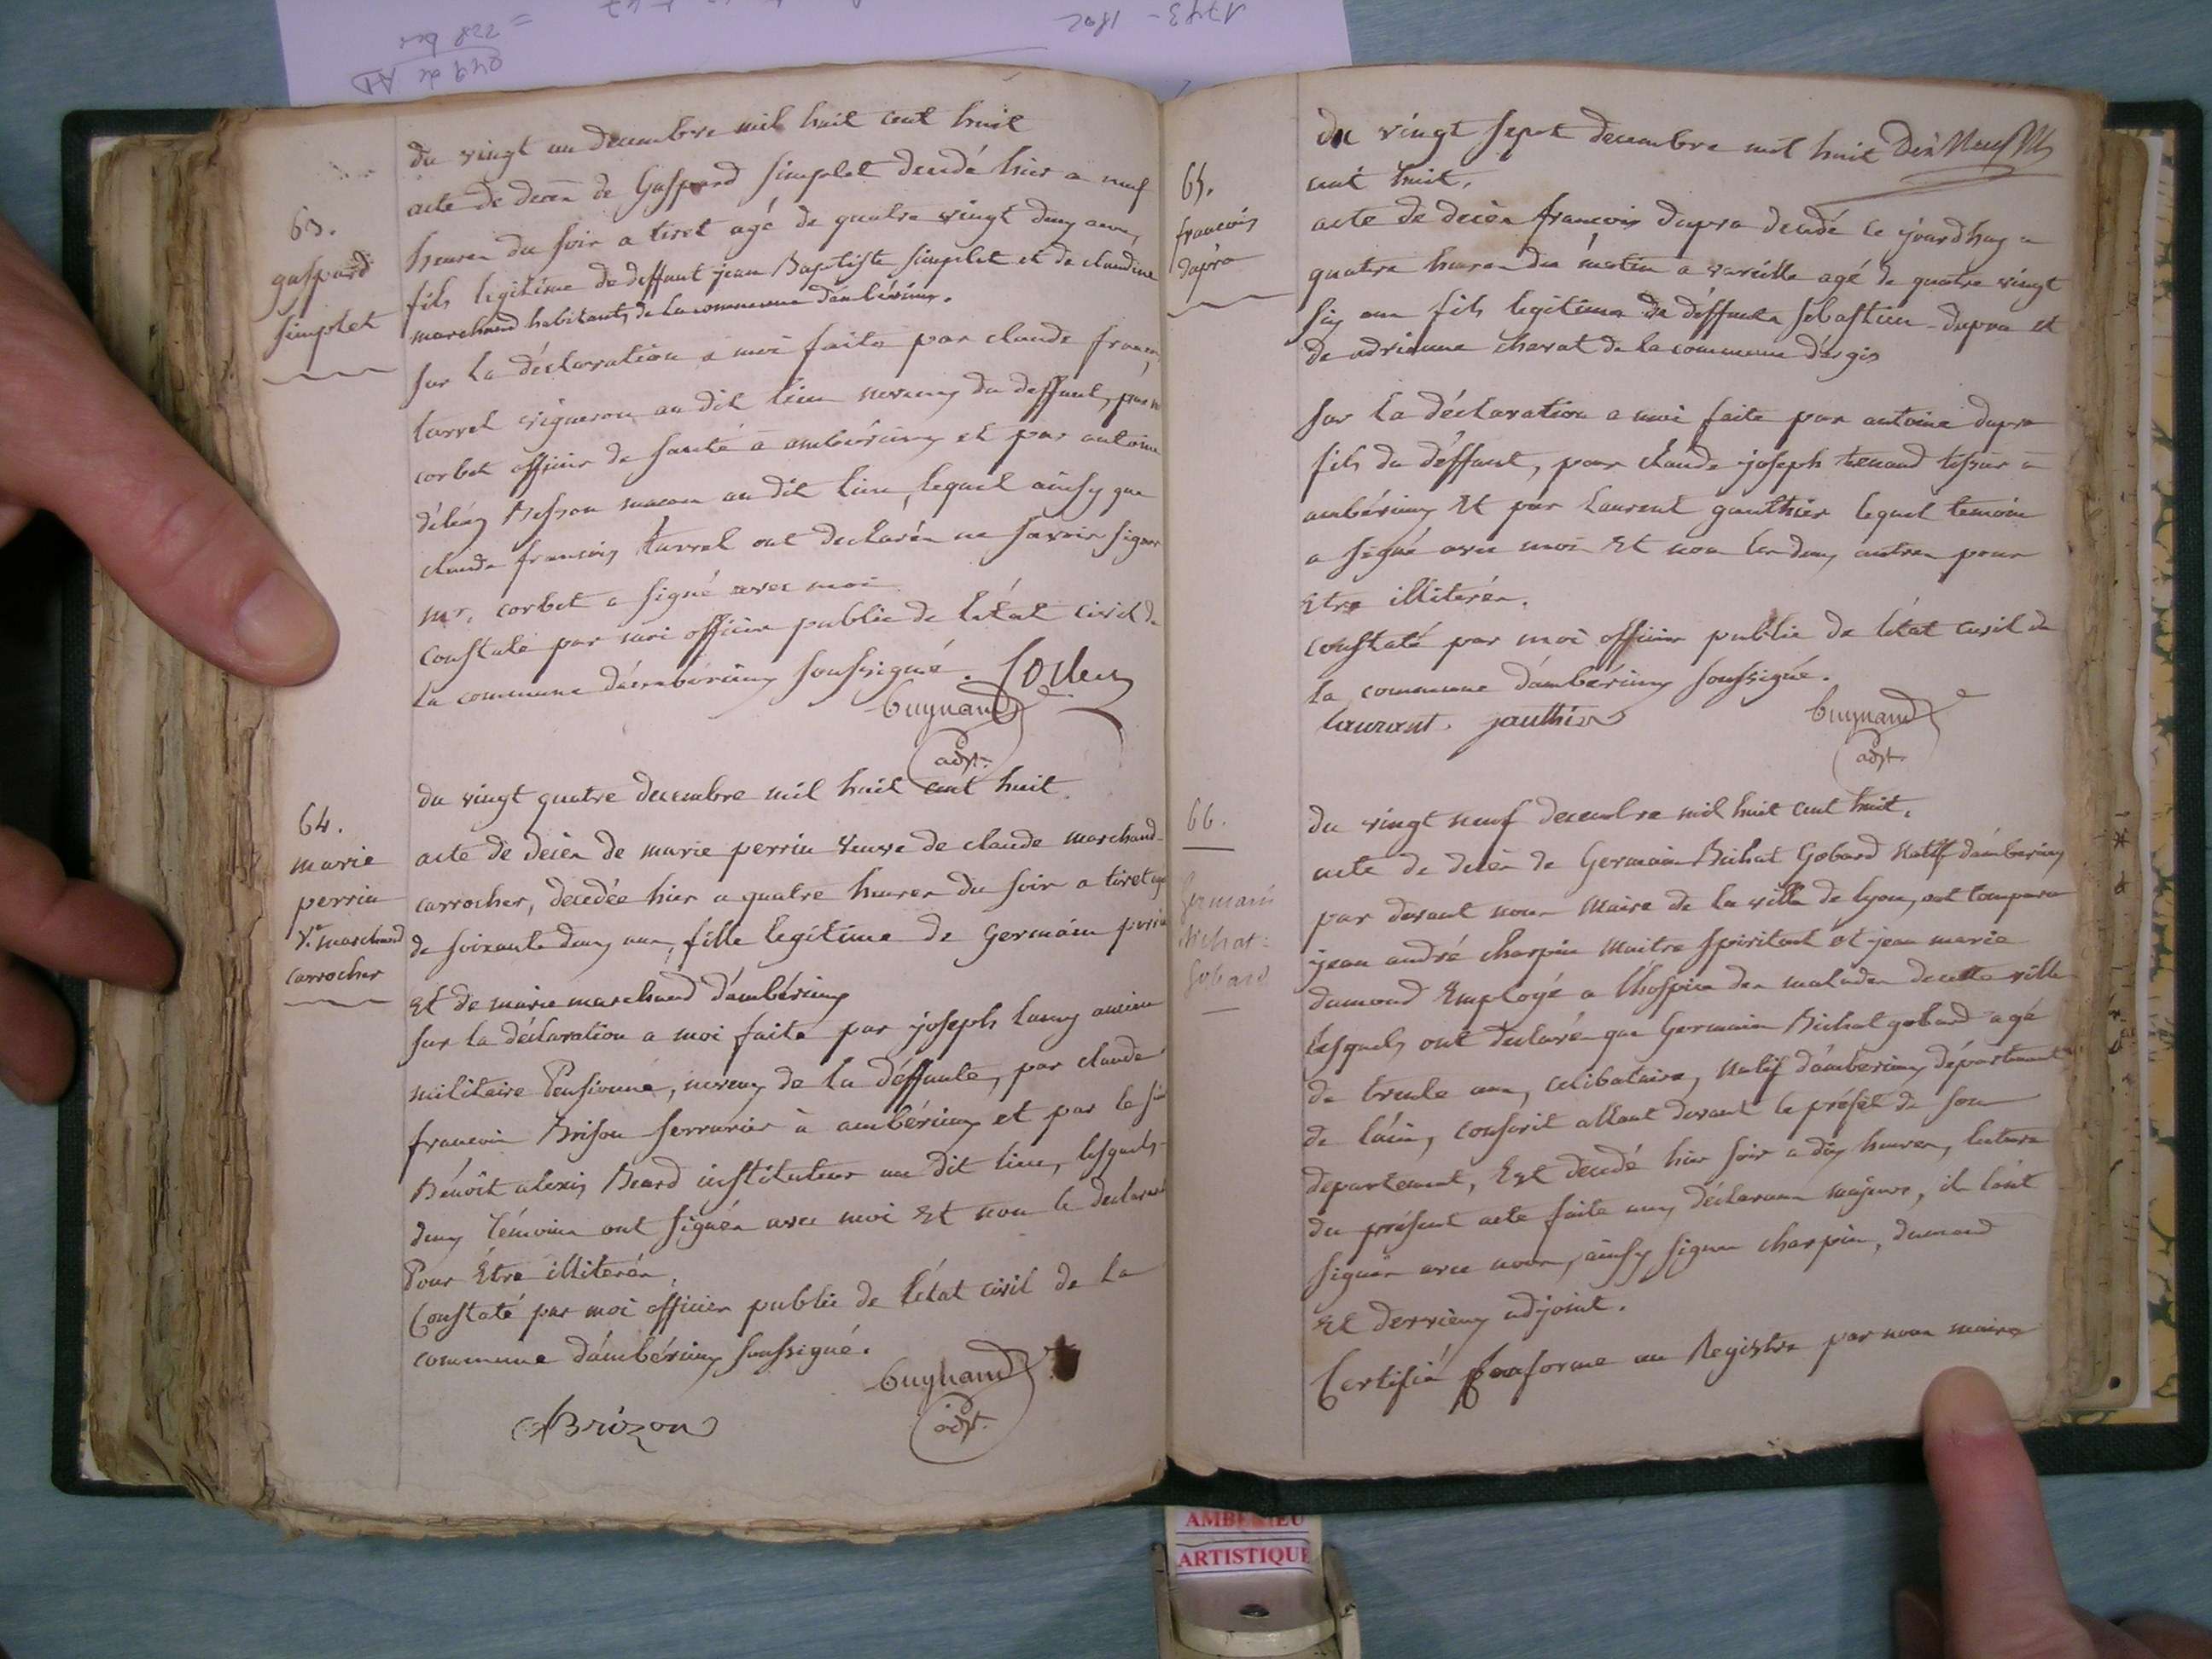 63.
gaspard
simplet
du vingt un decembre mil huit cent huit
acte de decès de Gaspard simplet decedé hier a neuf
heures du soir a tiret agé de quatre vingt deux ans,
fils legitime de deffunt jean Baptiste simplet et de claudine
marchand habitants de la commune d'ambérieux.
sur la déclaration a moi faite par claude françois
tarrel vigneron au dit lieu neveux du deffunt, par
corbet officier de santé a ambérieux et par antoine
Besson macon au dit lieu, lequel ainsy que
claude françois tarrel ont declarés ne savoir signer
mr. corbet a signé avec moi
constaté par moi officier public de l'état civil de
la commune d'ambérieux soussigné.
buynand
adjt.
64.
marie
perrin
ve. marchand
carrocher
du vingt quatre decembre mil huit cent huit
acte de decès de marie perrin veuve de claude marchand
carrocher, decedée hier a quatre heures du soir a tiret
de soixante deux ans, fille legitime de Germain perrin
et de marie marchand d'ambérieux
sur la déclaration a moi faite par joseph ancien
militaire Pensionné, neveux de la déffunte, par claude
francois Brison serrurier à ambérieux et par le sieur
Bénoit alexis Beard instituteur au dit lieu, lesquels
deux témoins ont signés avec moi et non le declarant
Pour Etre illiterés.
Constaté par moi officier public de l'état civil de la
commune d'ambérieux soussigné.
buynand
adjt.
Brizon
65.
francois
dupra
du vingt sept decembre mil huit Dix Neuf
cent huit.
acte de decès francois dupra decedé ce jourdhuy a
quatre heures du matin a vareille agé de quatre vingt
six ans fils legitime de déffunts sebastien dupra et
de adrianne charat de la commune d'argis
sur la déclaration a moi faite par antoine dupra
fils du déffunt, par claude joseph tenand tissier a
ambérieux et par Laurent gauthier lequel temoin
a signé avec moi et non les deux autres pour
Etre illiterés.
constaté par moi officier public de l'état civil de
la commune d'ambérieux soussigné.
laurant. gauthier
buynand
adjt.
66.
Germain
Bichat
Gobard
du vingt neuf decembre mil huit cent huit.
acte de decès de Germain Bichat Gobard natif d'ambérieux
par devant nous Maire de la ville de lyon, ont comparu
jean andré charpin maitre spirituel et jean marie
dumond Employé a l'hospice des malades de cette ville
lesquels ont declarés que Germain Bichat gobard agé
de trente ans, celibataire, natif d'ambérieux département
de l'ain, conscrit allant devant le préfet de son
departement, Est decedé hier soir a dix heures, lecture
du présent acte faite aux déclarans majeurs, ils l'ont
signés avec nous, ainsy signés charpin, dumond
Et derrieux adjoint.
Certifié Conforme au Registre par nous maire
AMBERIEU
ARTISTIQUE